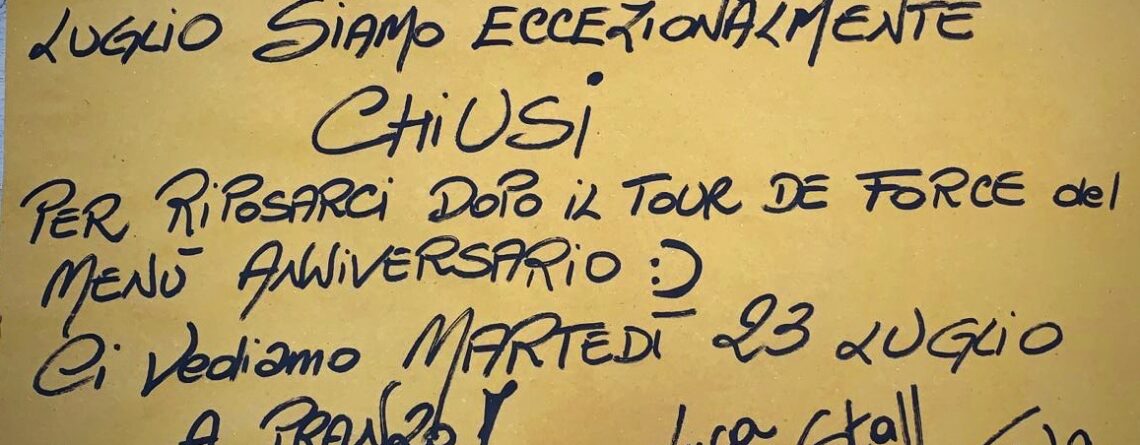 LUGLIO SIAMO ECCEZIONALMENTE
CHIUSI
PER RIPOSARCI DOPO IL TOUR DE FORCE del
MENÙ ANNIVERSARIO :)
Ci Vediamo MARTEDÌ 23 LUGLIO
A PRANZO!